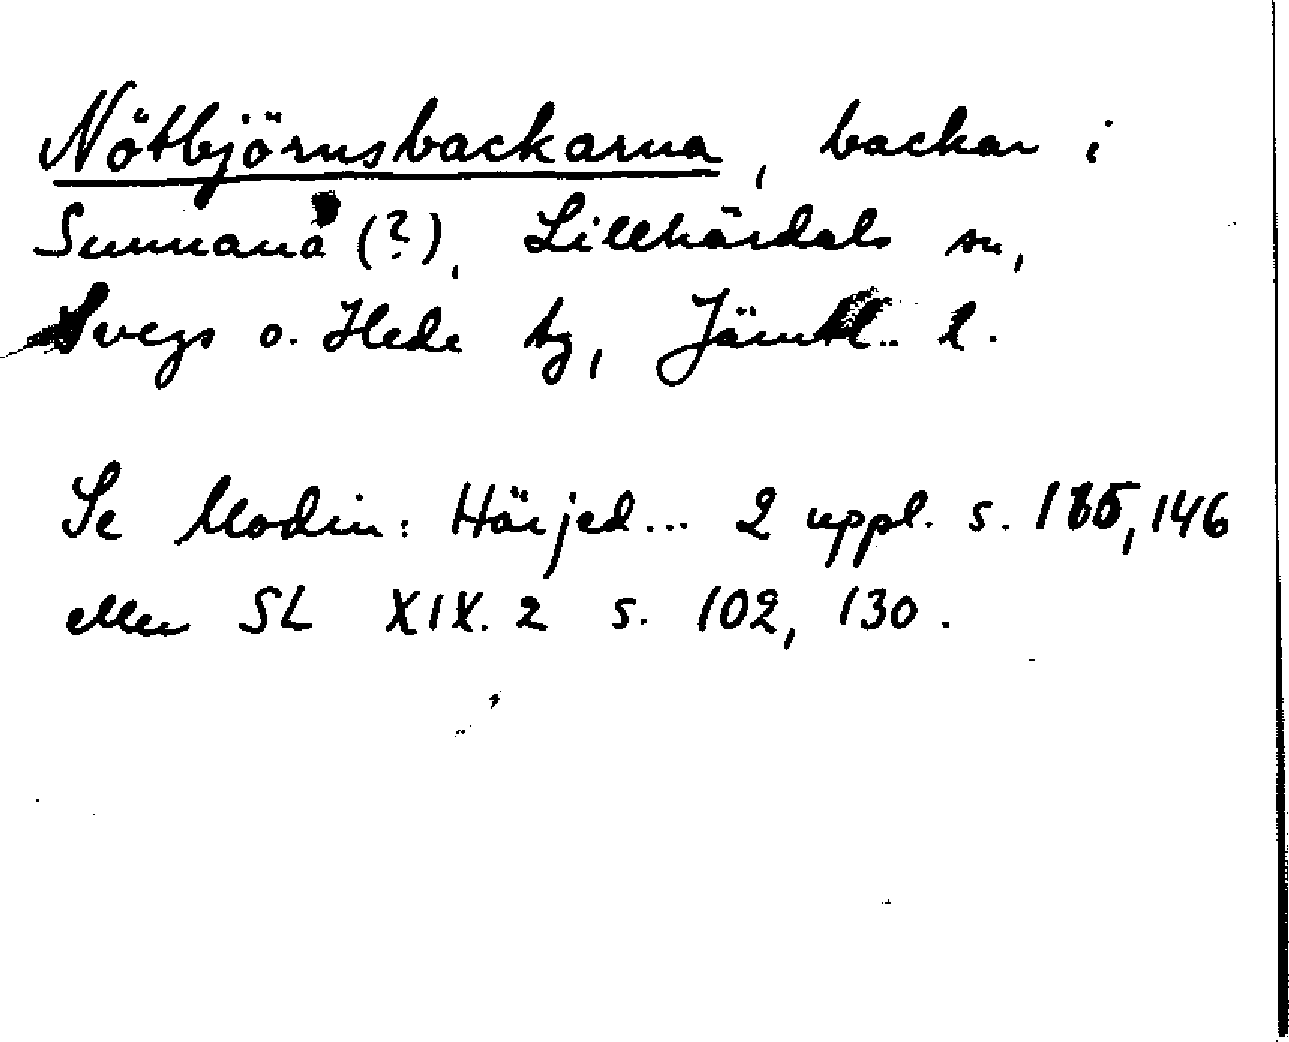 Nötbjörnsbackarna, backar i
Sunnanå (?), Lillhärdals sn,
Svegs o. Hede tg, Jämtl. l.
Se Modin: Härjed... 2 uppl. s. 185, 146
eller SL XIX. 2 s. 102, 130.